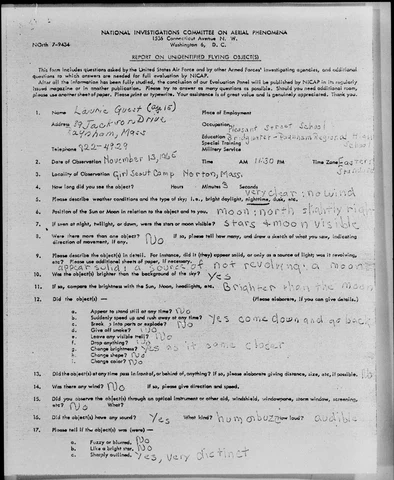 NATIONAL INVESTIGATIONS COMMITTEE ON AERIAL PHENOMENA
1536 Connecticut Avenue N. W.
NOrth 7-9434 Washington 6, D. C.
REPORT ON UNIDENTIFIED FLYING OBJECT(S)
This form includes questions asked by the United States Air Force and by other Armed Forces' investigating agencies, and additional
questions to which answers are needed for full evaluation by NICAP.
After all the information has been fully studied, the conclusion of our Evaluation Panel will be published by NICAP in its regularly
issued magazine or in another publication. Please try to answer as many questions as possible. Should you need additional room,
please use another sheet of paper. Please print or typewrite. Your assistance is of great value and is genuinely appreciated. Thank you.
1. Name Laurie Guest (age 15) Place of Employment
Address 29 Jackson Drive Occupation
Raynham, Mass Education Pleasant Street School
Bridgewater - Raynham Regional High School
Special Training
Telephone 822-4729 Military Service
2. Date of Observation November 13, 1966 Time AM 11:30 PM Time Zone Eastern Standard
3. Locality of Observation Girl Scout Camp Norton, Mass.
4. How long did you see the object? Hours Minutes 3 Seconds
5. Please describe weather conditions and the type of sky; i.e., bright daylight, nighttime, dusk, etc. very clear; no wind
6. Position of the Sun or Moon in relation to the object and to you. moon; north slightly right
7. If seen at night, twilight, or dawn, were the stars or moon visible? stars & moon visible
8. Were there more than one object? No If so, please tell how many, and draw a sketch of what you saw, indicating
direction of movement, if any.
9. Please describe the object(s) in detail. For instance, did it (they) appear solid, or only as a source of light; was it revolving,
etc.? Please use additional sheets of paper, if necessary.
appear solid; a source of not revolving; a moon
10. Was the object(s) brighter than the background of the sky? Yes
11. If so, compare the brightness with the Sun, Moon, headlights, etc. Brighter than the moon
12. Did the object(s) — (Please elaborate, if you can give details.)
a. Appear to stand still at any time? No
b. Suddenly speed up and rush away at any time? Yes come down and go back
c. Break up into parts or explode? No
d. Give off smoke? No
e. Leave any visible trail? No
f. Drop anything? No
g. Change brightness? Yes as it came closer
h. Change shape? No
i. Change color? No
13. Did the object(s) at any time pass in front of, or behind of, anything? If so, please elaborate giving distance, size, etc, if possible. No
14. Was there any wind? No If so, please give direction and speed.
15. Did you observe the object(s) through an optical instrument or other aid, windshield, windowpane, storm window, screening,
etc? No What?
16. Did the object(s) have any sound? Yes What kind? hum or buzz How loud? audible
17. Please tell if the object(s) was (were) —
a. Fuzzy or blurred. No
b. Like a bright star. No
c. Sharply outlined. Yes, very distinct